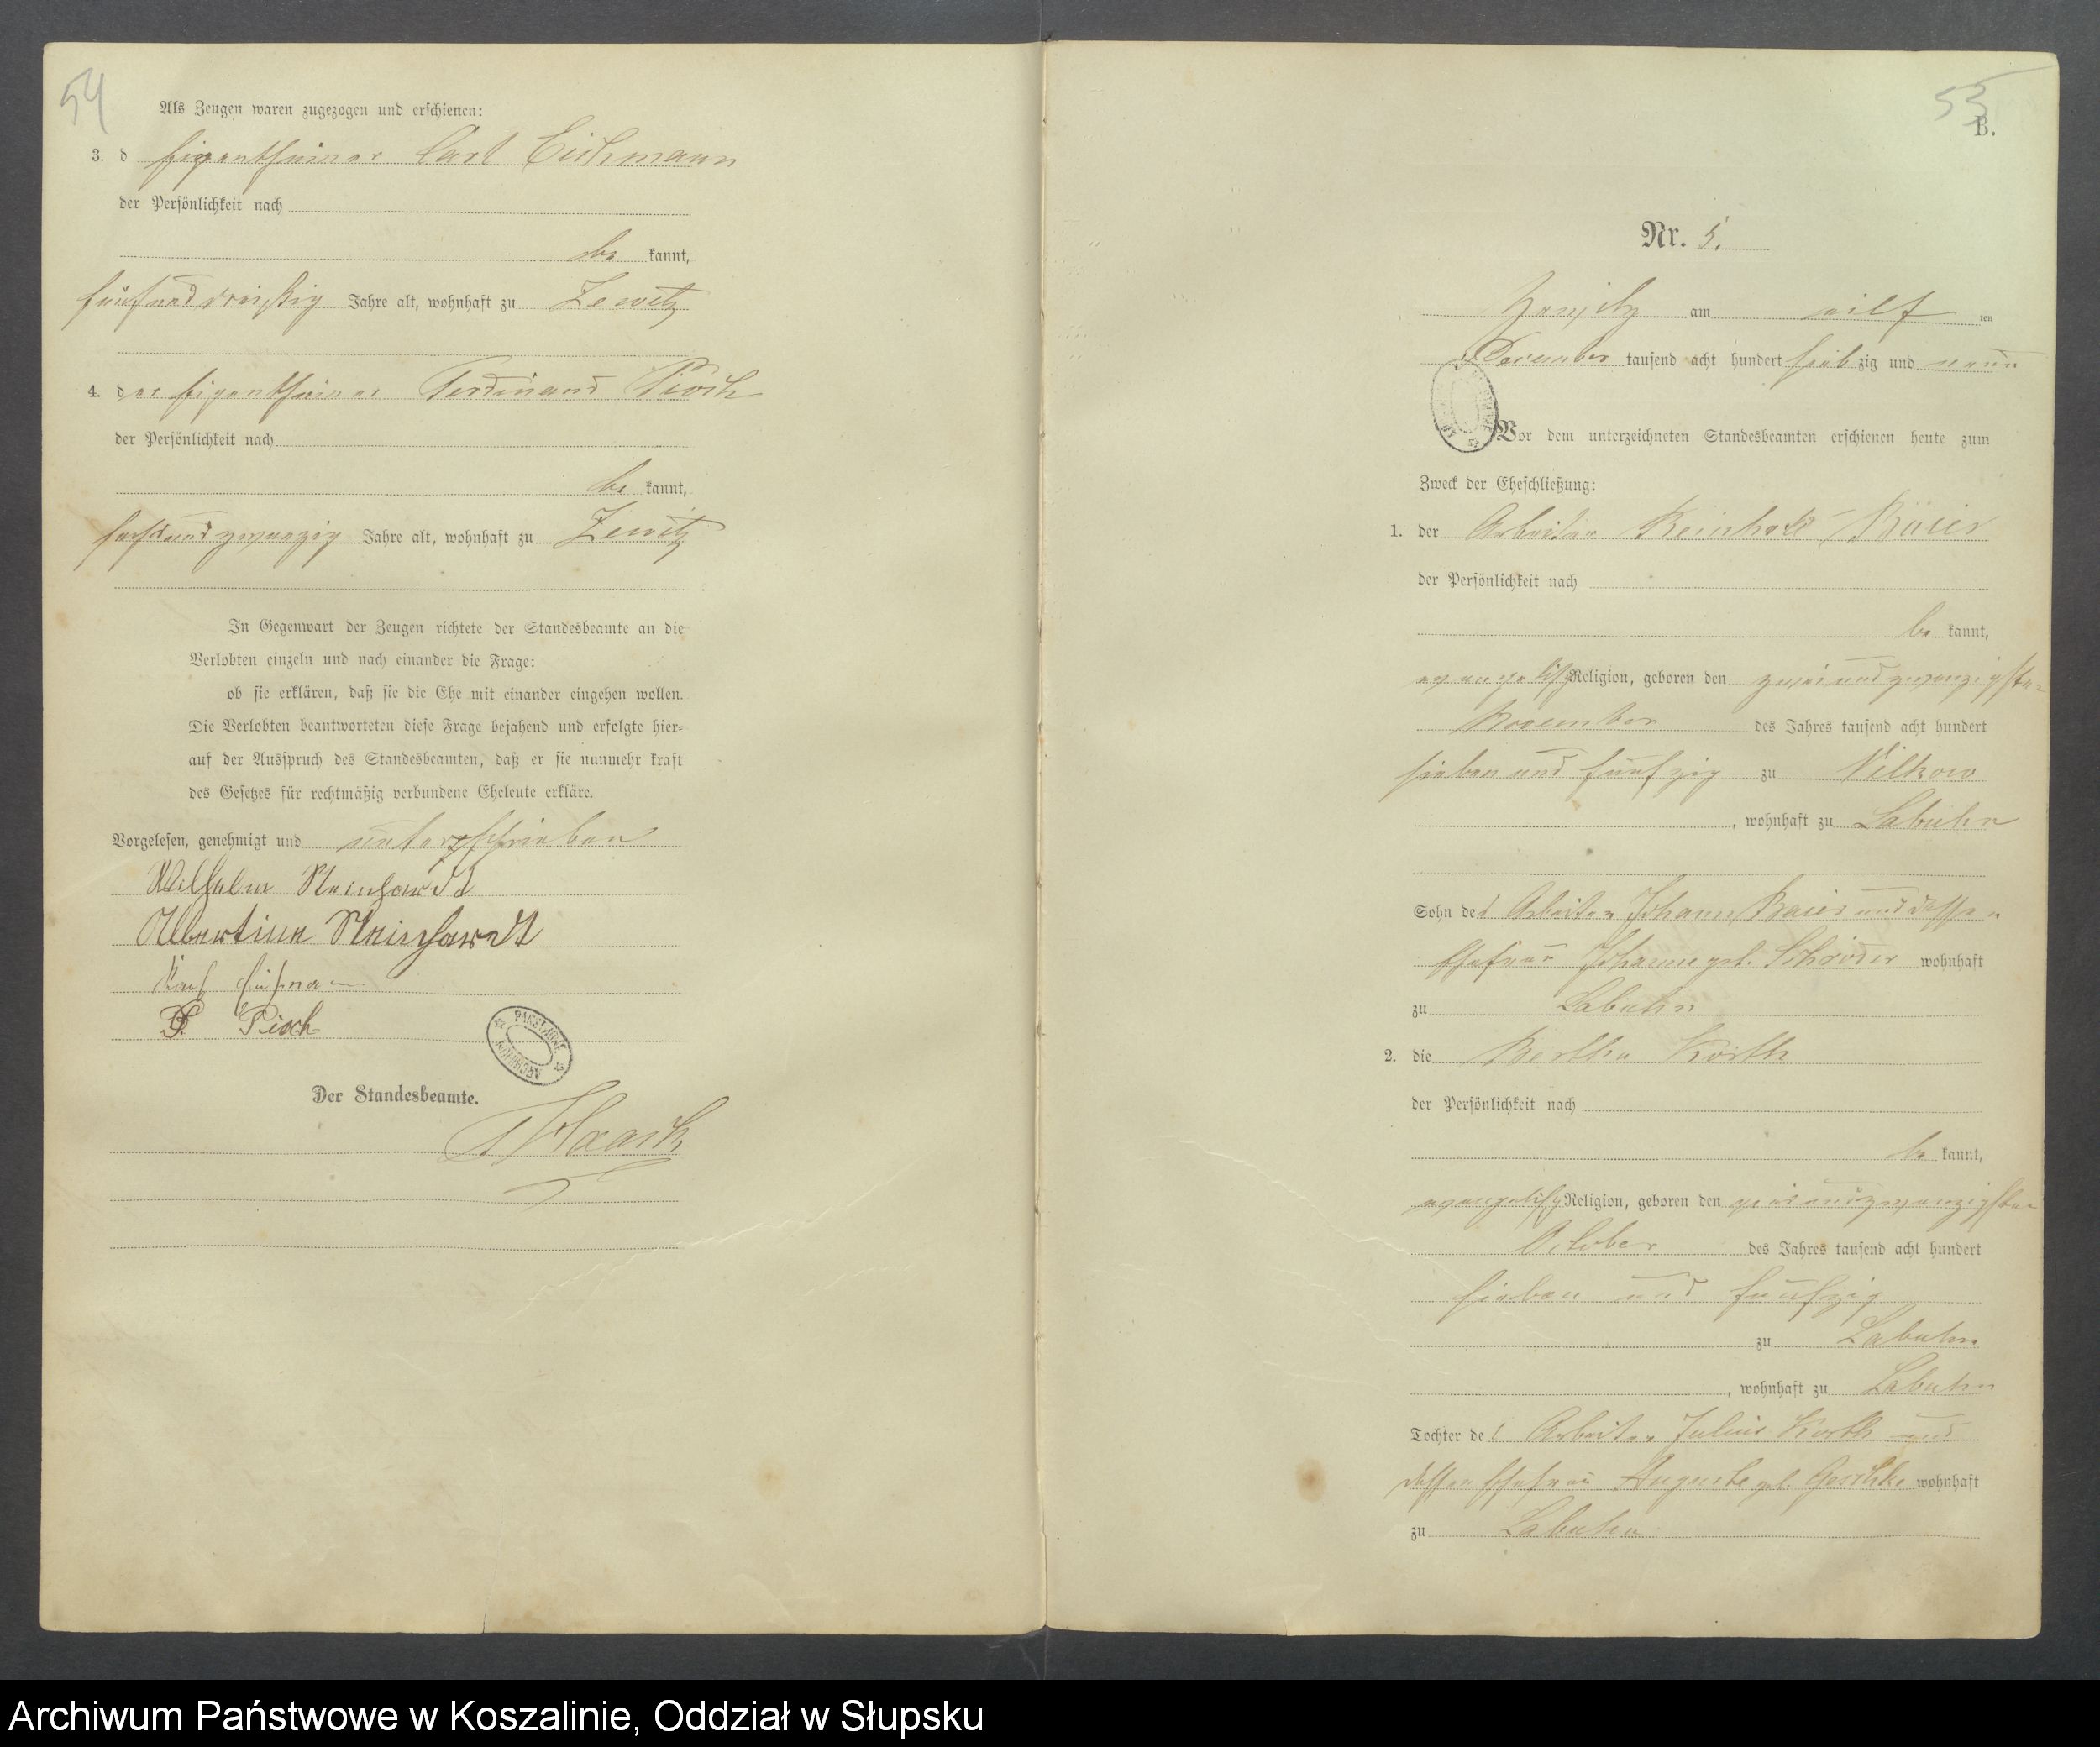 54
Als Zeugen waren zugezogen und erschienen:
3. d Eigenthümer Carl Eichmann
der Persönlichkeit nach
be kannt,
fünfunddreißig Jahre alt, wohnhaft zu Zewitz
4. der Eigenthümer Ferdinand
der Persönlichkeit nach
be kannt,
sechsundzwanzig Jahre alt, wohnhaft zu Zewitz
In Gegenwart der Zeugen richtete der Standesbeamte an die
Verlobten einzeln und nach einander die Frage:
ob sie erklären, daß sie die Ehe mit einander eingehen wollen.
Die Verlobten beantworteten diese Frage bejahend und erfolgte hier-
auf der Ausspruch des Standesbeamten, daß er sie nunmehr kraft
des Gesetzes für rechtmäßig verbundene Eheleute erkläre.
Vorgelesen, genehmigt und unterschrieben
Wilhelm
Albertine
Der Standesbeamte.
Haack
55
B.
Nr. 5.
am eilf ten
December tausend acht hundert siebzig und neun
Vor dem unterzeichneten Standesbeamten erschienen heute zum
Zweck der Eheschließung:
1. der Arbeiter
der Persönlichkeit nach
be kannt,
evangelisch Religion, geboren den zweiundzwanzigsten
November des Jahres tausend acht hundert
sieben und fünfzig zu Vilkow
, wohnhaft zu Labuhn
Sohn des Arbeiter Johann Baier und dessen
Ehefrau Johanne geb. Schröder wohnhaft
zu Labuhn
2. die Bertha Korth
der Persönlichkeit nach
be kannt,
evangelisch Religion, geboren den zweiundzwanzigsten
October des Jahres tausend acht hundert
sieben und fünfzig
zu Labuhn
, wohnhaft zu Labuhn
Tochter des Arbeiter Julius Korth und
dessen Ehefrau Auguste geb. wohnhaft
zu Labuhn
Archiwum Państwowe w Koszalinie, Oddział w Słupsku